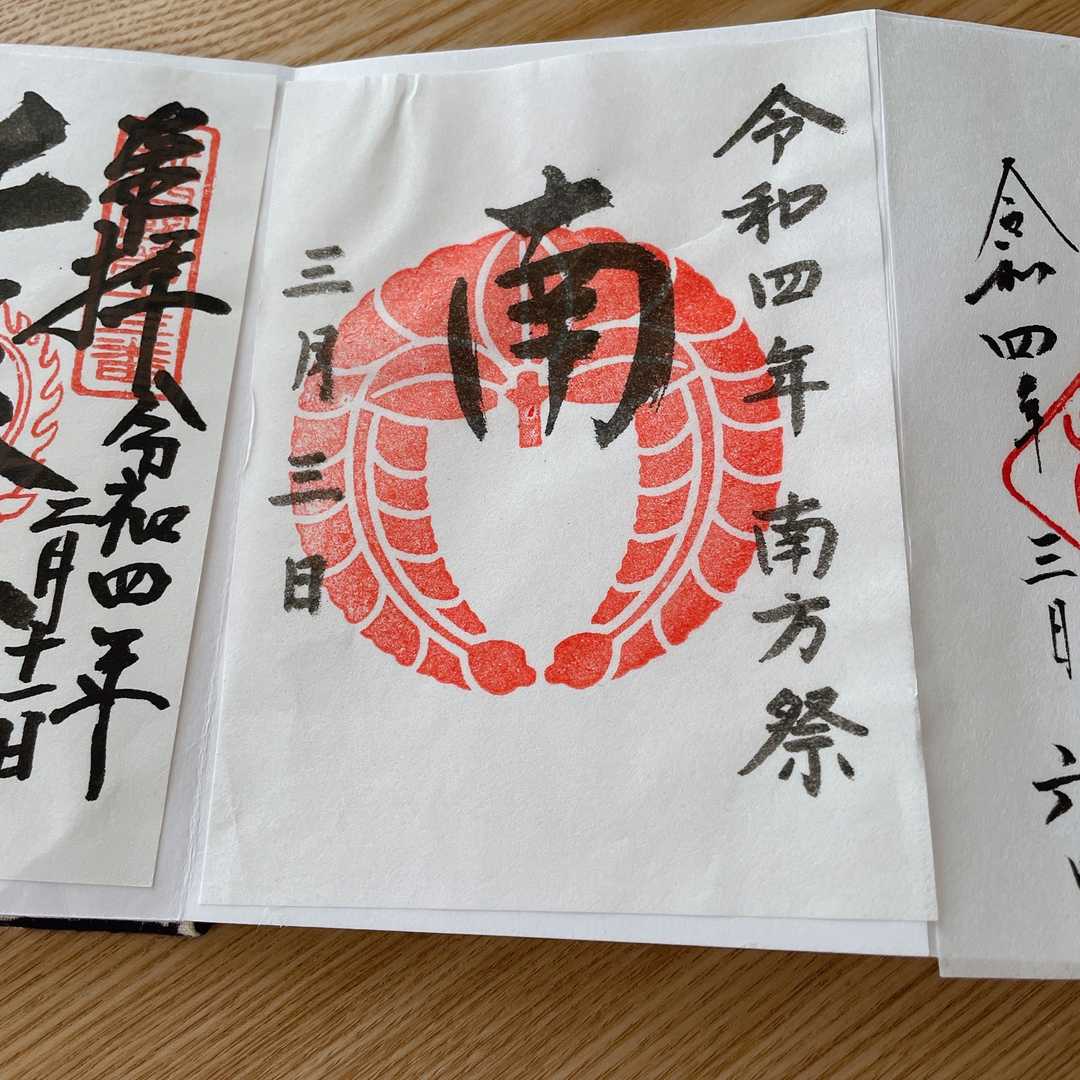 令和四年三月六
令和四年 南方祭
南
三月三日
奉拝 令和四年
二月十一日